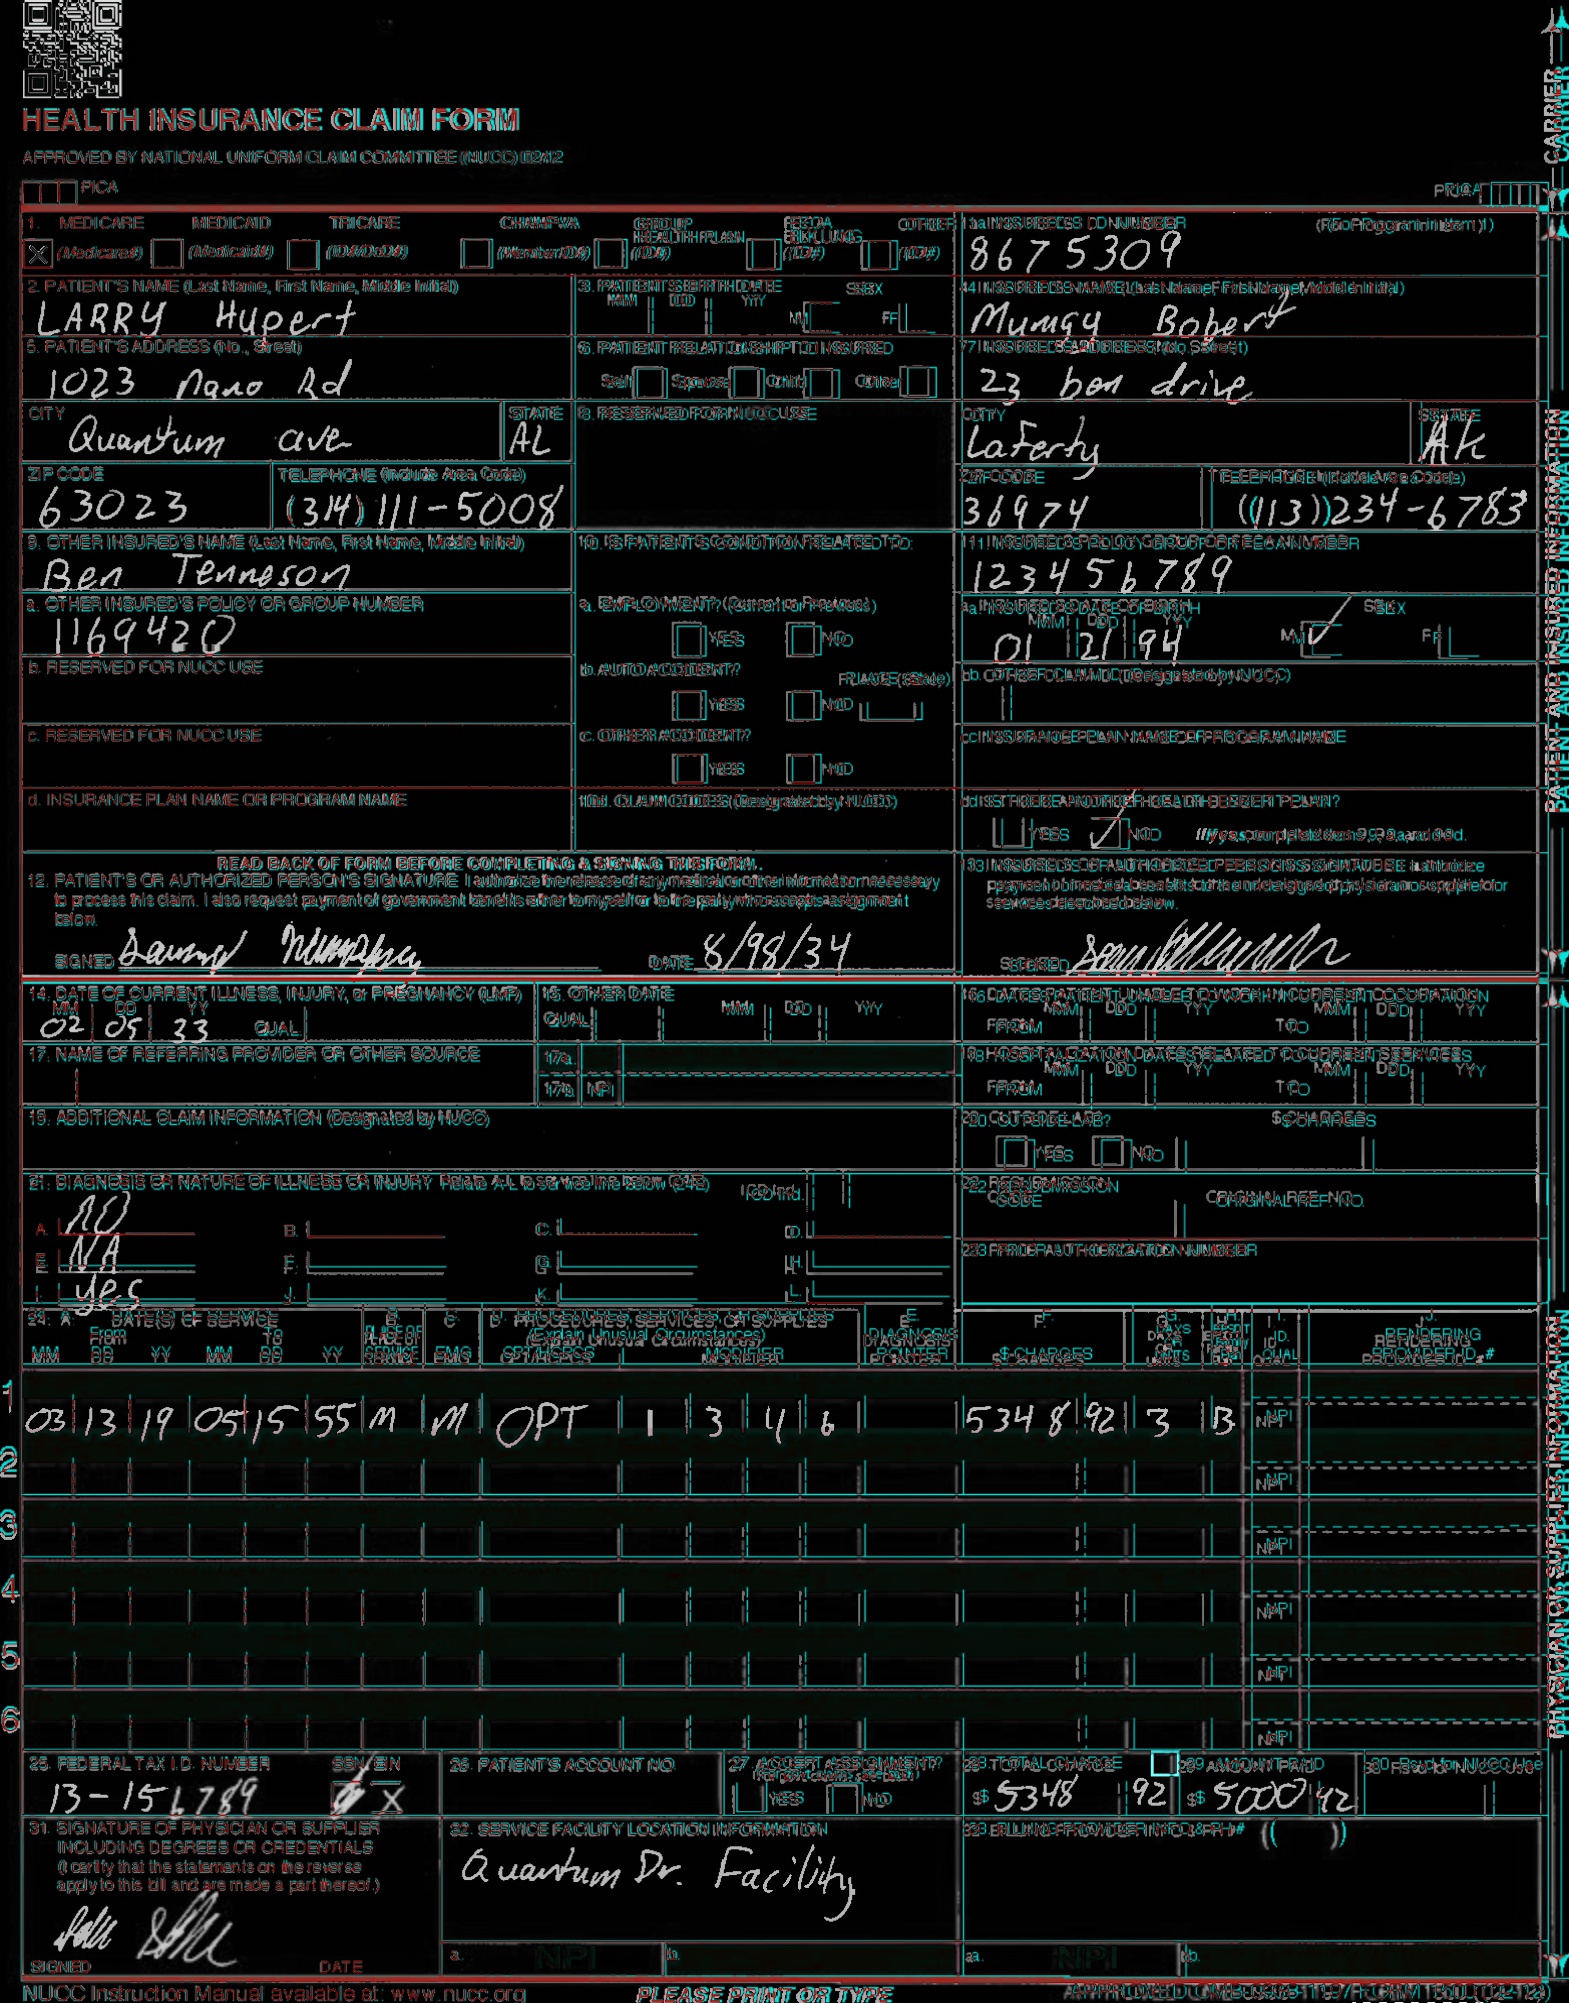 HEALTH INSURANCE CLAIM FORM
APPROVED BY NATIONAL UNIFORM CLAIM COMMITTEE (NUCC) 02/12
PICA PICA
CARRIER
1. MEDICARE MEDICAID TRICARE CHAMPVA GROUP HEALTH PLAN FECA BLK LUNG OTHER
X (Medicare#) (Medicaid#) (ID#/DoD#) (Member ID#) (ID#) (ID#) (ID#)
1a. INSURED'S I.D. NUMBER (For Program in Item 1)
8675309
2. PATIENT'S NAME (Last Name, First Name, Middle Initial)
LARRY Hupert
3. PATIENT'S BIRTH DATE SEX
MM DD YY M F
4. INSURED'S NAME (Last Name, First Name, Middle Initial)
Bobert
5. PATIENT'S ADDRESS (No., Street)
1023 nano Rd
6. PATIENT RELATIONSHIP TO INSURED
Self Spouse Child Other
7. INSURED'S ADDRESS (No., Street)
23 ben drive
CITY STATE
Quantum ave AL
8. RESERVED FOR NUCC USE
CITY STATE
Laferty AK
ZIP CODE TELEPHONE (Include Area Code)
63023 (314) 111-5008
ZIP CODE TELEPHONE (Include Area Code)
36974 (113) 234-6783
9. OTHER INSURED'S NAME (Last Name, First Name, Middle Initial)
Ben Tenneson
10. IS PATIENT'S CONDITION RELATED TO:
11. INSURED'S POLICY GROUP OR FECA NUMBER
123456789
a. OTHER INSURED'S POLICY OR GROUP NUMBER
1169420
a. EMPLOYMENT? (Current or Previous)
YES NO
a. INSURED'S DATE OF BIRTH SEX
MM DD YY
01 21 94 M F
b. RESERVED FOR NUCC USE
b. AUTO ACCIDENT? PLACE (State)
YES NO
b. OTHER CLAIM ID (Designated by NUCC)
c. RESERVED FOR NUCC USE
c. OTHER ACCIDENT?
YES NO
c. INSURANCE PLAN NAME OR PROGRAM NAME
d. INSURANCE PLAN NAME OR PROGRAM NAME
10d. CLAIM CODES (Designated by NUCC)
d. IS THERE ANOTHER HEALTH BENEFIT PLAN?
YES NO If yes, complete items 9, 9a, and 9d.
READ BACK OF FORM BEFORE COMPLETING & SIGNING THIS FORM.
12. PATIENT'S OR AUTHORIZED PERSON'S SIGNATURE I authorize the release of any medical or other information necessary
to process this claim. I also request payment of government benefits either to myself or to the party who accepts assignment
below.
SIGNED DATE 8/98/34
13. INSURED'S OR AUTHORIZED PERSON'S SIGNATURE I authorize
payment of medical benefits to the undersigned physician or supplier for
services described below.
SIGNED
PATIENT AND INSURED INFORMATION
14. DATE OF CURRENT ILLNESS, INJURY, or PREGNANCY (LMP)
MM DD YY
02 05 33 QUAL.
15. OTHER DATE
QUAL. MM DD YY
16. DATES PATIENT UNABLE TO WORK IN CURRENT OCCUPATION
MM DD YY MM DD YY
FROM TO
17. NAME OF REFERRING PROVIDER OR OTHER SOURCE
17a.
17b. NPI
18. HOSPITALIZATION DATES RELATED TO CURRENT SERVICES
MM DD YY MM DD YY
FROM TO
19. ADDITIONAL CLAIM INFORMATION (Designated by NUCC)
20. OUTSIDE LAB? $ CHARGES
YES NO
21. DIAGNOSIS OR NATURE OF ILLNESS OR INJURY Relate A-L to service line below (24E) ICD Ind.
A. NO B. C. D.
E. NA F. G. H.
I. yes J. K. L.
22. RESUBMISSION CODE ORIGINAL REF. NO.
23. PRIOR AUTHORIZATION NUMBER
24. A. DATE(S) OF SERVICE B. C. D. PROCEDURES, SERVICES, OR SUPPLIES E. F. G. H. I. J.
From To PLACE OF SERVICE EMG (Explain Unusual Circumstances) DIAGNOSIS POINTER $ CHARGES DAYS OR UNITS EPSDT Family Plan ID. QUAL. RENDERING PROVIDER ID. #
MM DD YY MM DD YY CPT/HCPCS MODIFIER
1 03 13 19 05 15 55 M M OPT 1 3 4 6 5348 92 3 B NPI
2 NPI
3 NPI
4 NPI
5 NPI
6 NPI
PHYSICIAN OR SUPPLIER INFORMATION
25. FEDERAL TAX I.D. NUMBER SSN EIN
13-156789 X
26. PATIENT'S ACCOUNT NO.
27. ACCEPT ASSIGNMENT?
(For govt. claims, see back)
YES NO
28. TOTAL CHARGE
$ 5348 92
29. AMOUNT PAID
$ 5000 42
30. Rsvd for NUCC Use
31. SIGNATURE OF PHYSICIAN OR SUPPLIER
INCLUDING DEGREES OR CREDENTIALS
(I certify that the statements on the reverse
apply to this bill and are made a part thereof.)
SIGNED DATE
32. SERVICE FACILITY LOCATION INFORMATION
Quantum Dr. Facility
a. NPI b.
33. BILLING PROVIDER INFO & PH# ( )
a. NPI b.
NUCC Instruction Manual available at: www.nucc.org
PLEASE PRINT OR TYPE
APPROVED OMB-0938-1197 FORM 1500 (02-12)